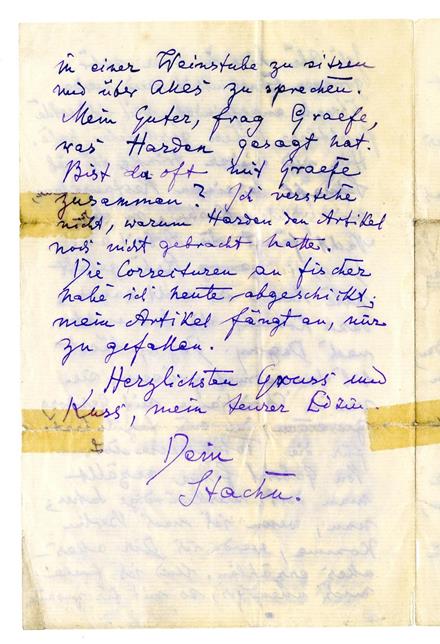 in einer Weinstube zu sitzen
und über alles zu sprechen.
Mein Guter, frag Graefe,
was Harden gesagt hat.
Bist du oft mit Graefe
zusammen? Ich verstehe
nicht, warum Harden den Artikel
noch nicht gebracht hätte.
Die Correcturen an Fischer
habe ich heute abgeschickt;
mein Artikel fängt an, mir
zu gefallen.
Herzlichsten Gruss und
Kuss, mein teurer
Dein
Stachu.